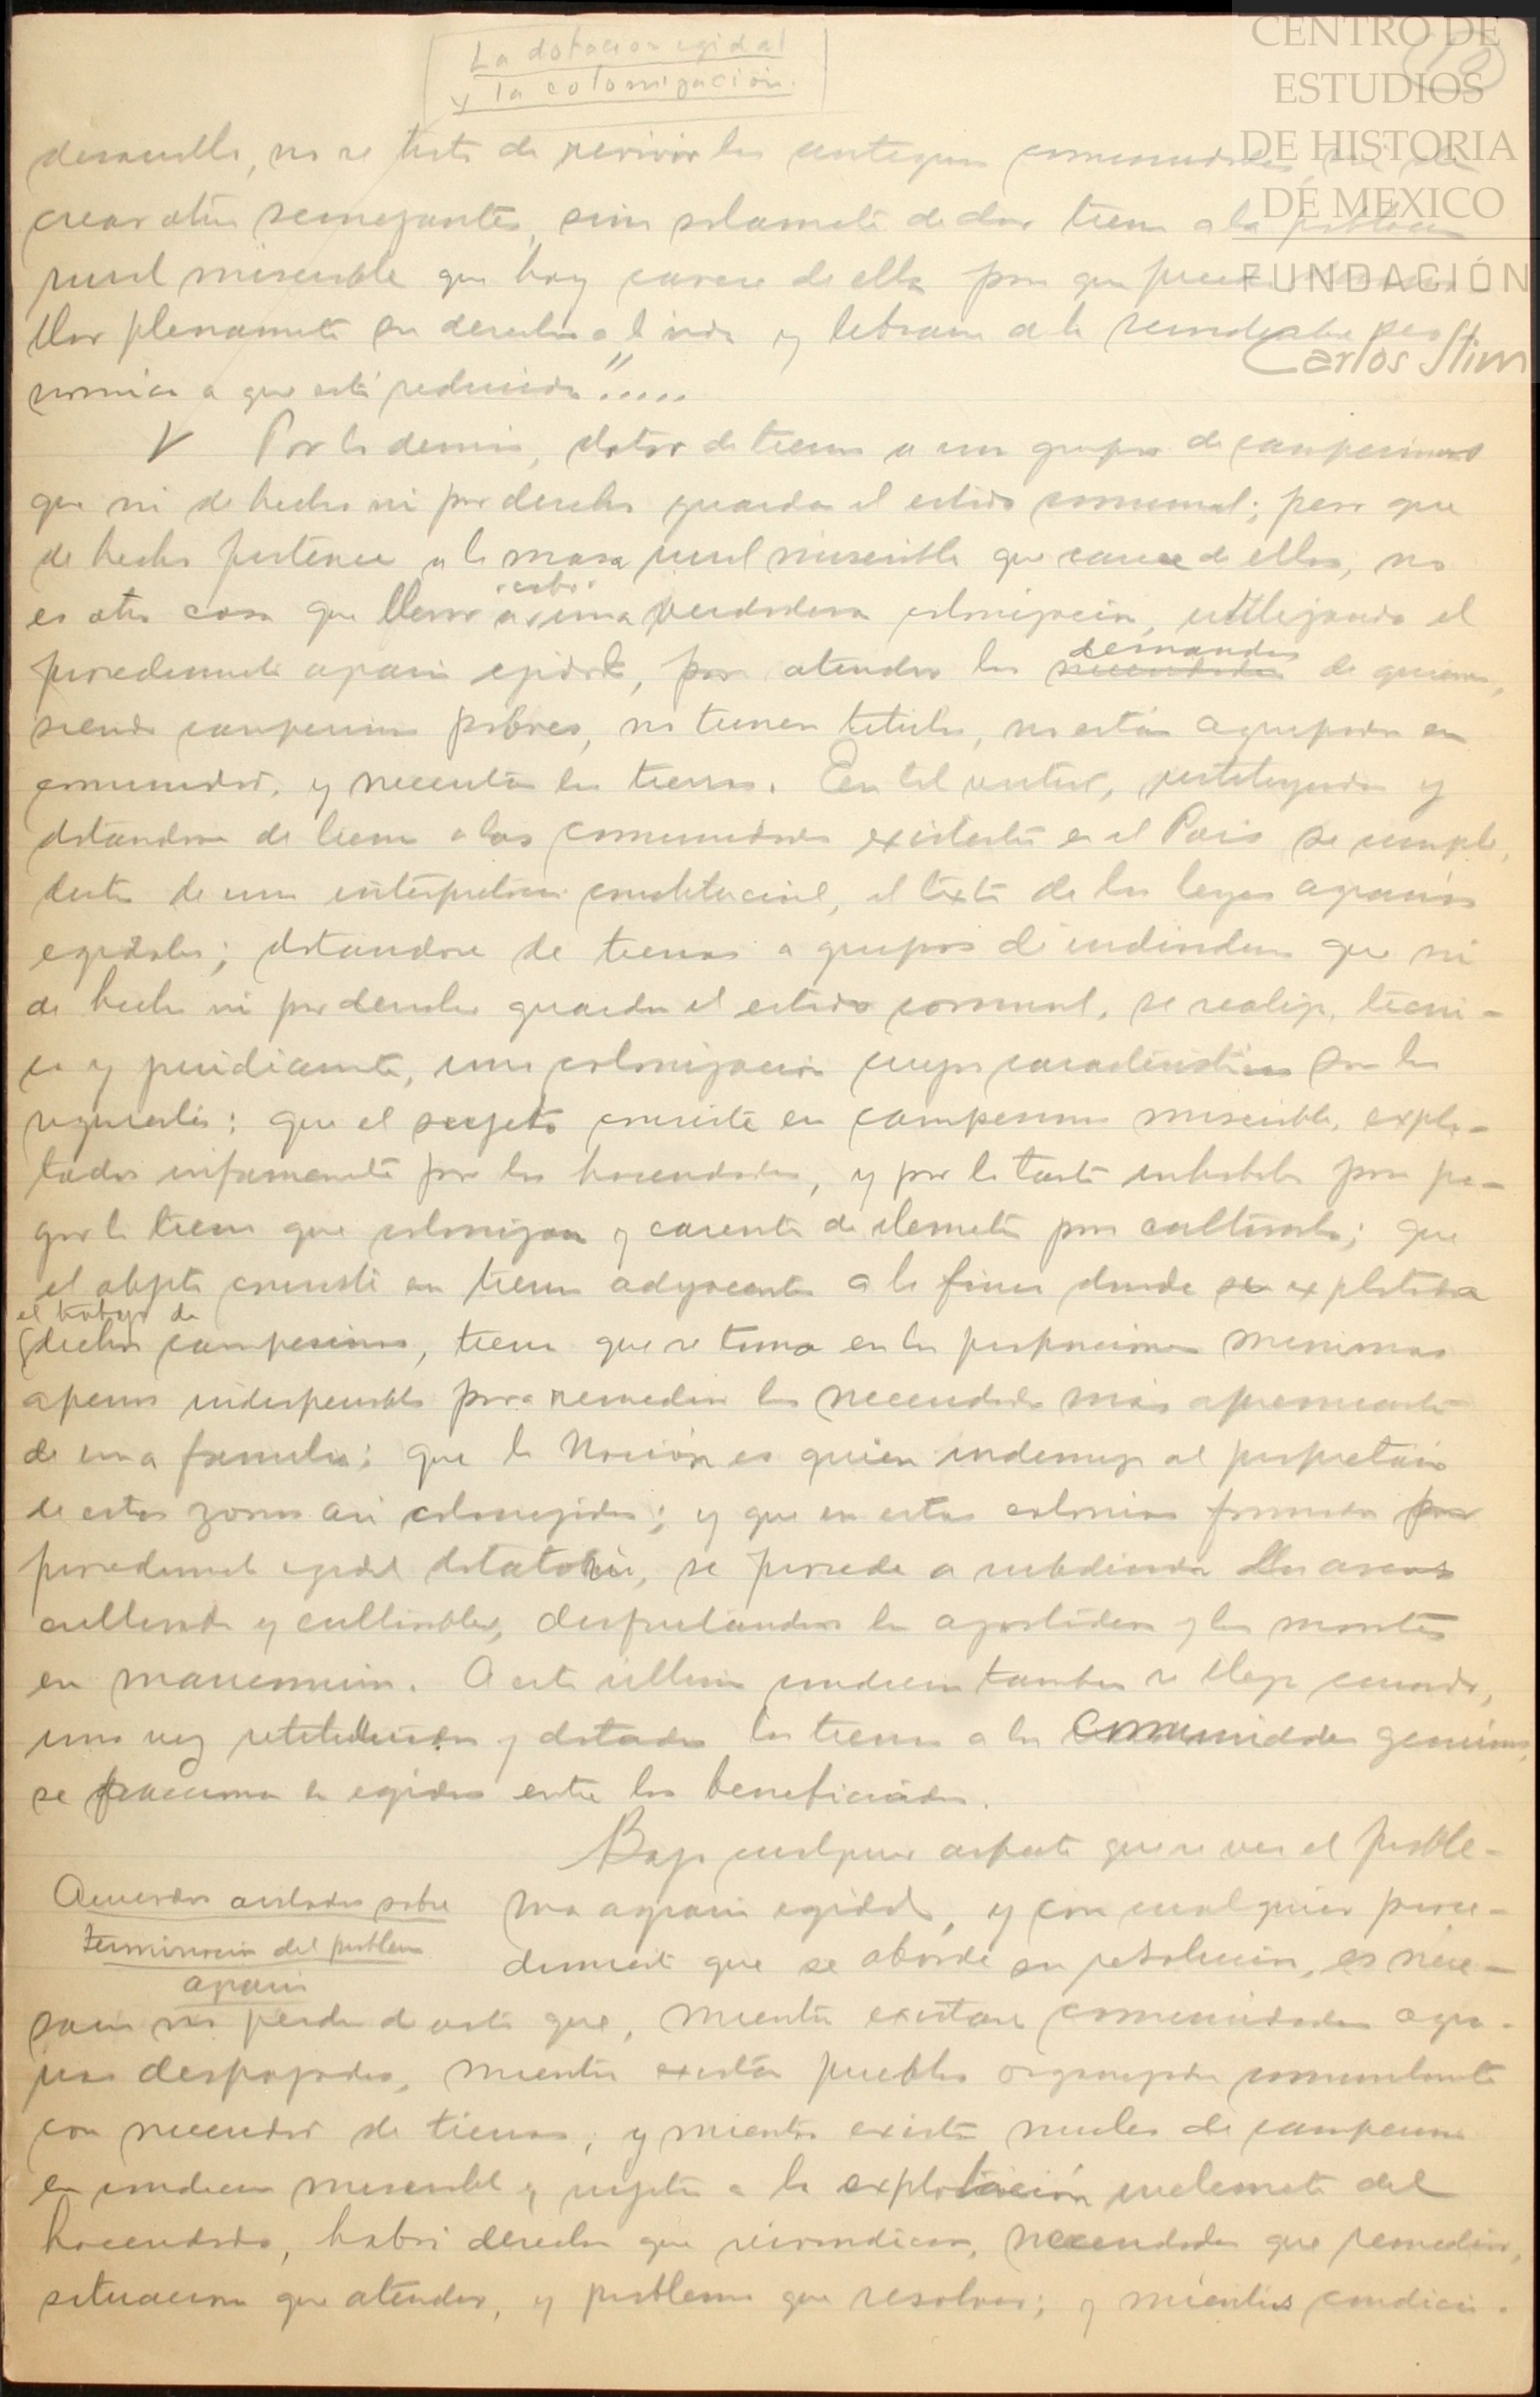 La dotacion egidal
y la colonización.
CENTRO DE
ESTUDIOS
DE HISTORIA
DE MEXICO
FUNDACIÓN
Carlos Slim
desarrollo, no se trata de revivir las antiguas comunidades, ni de
crear otras semejantes, sino solamente de dar tierra a la población
rural miserable que hoy carece de ella para que pueda
llar plenamente su derecho a la vida y librarse de la servidumbre eco
nomica a que está reducida".....
V Por lo demás, dotar de tierras a un grupo de campesinos
que ni de hecho ni por derecho guarda el estado comunal; pero que
de hecho pertenece a la masa rural miserable que carece de ellas, no
es otra cosa que llevar a cabo una verdadera colonización, utilizando el
procedimiento agrario egidal, para atender las demandas de quienes,
siendo campesinos pobres, no tienen titulos, no están agrupados en
comunidad, y necesitan las tierras. En tal virtud, restituyendo y
dotandose de tierras a las comunidades existentes en el Pais se cumple,
dentro de una interpretacion constitucional, el texto de las leyes agrarias
egidales; dotandose de tierras a grupos de individuos que ni
de hecho ni por derecho guardan el estado comunal, se realiza, tecni-
ca y juridicamente, una colonizacion cuyas caracteristicas son las
siguientes: que el sujeto consiste en campesinos miserables, explo-
tados infamemente por los hacendados, y por lo tanto inhabiles para pa-
gar la tierra que colonizan y carentes de elementos para cultivarla; que
el objeto consiste en tierras adyacentes a la finca donde se explotaba
el trabajo de
dichos campesinos, tierra que se toma en las proporciones minimas
apenas indispensables para remediar las necesidades más apremiantes
de una familia; que la Nación es quien indemniza al propietario
de estas zonas asi colonizadas; y que en estas colonias formadas por
procedimiento egidal dotatorio, se procede a subdividir las areas
cultivadas y cultivables, disfrutandose los agostaderos y los montes
en mancomun. A esta ultima condicion tambien se llega cuando,
una vez restituidas y dotadas las tierras a las Comunidades genuinas,
se fracciona los egidos entre los beneficiados.
Bajo cualquier aspecto que se vea el proble-
Acuerdos aislados sobre
terminación del problema
agrario
ma agrario egidal, y con cualquier proce-
dimiento que se aborde su resolucion, es nece-
sario no perder de vista que, mientras existan comunidades agra-
rias despojadas, mientras existan pueblos organizados comunalmente
con necesidad de tierras, y mientras exista nucleos de campesinos
en condicion miserable y sujetos a la explotación inclemente del
hacendado, habrá derechos que reivindicar, necesidades que remediar,
situaciones que atender, y problemas que resolver; y mientras condicio-